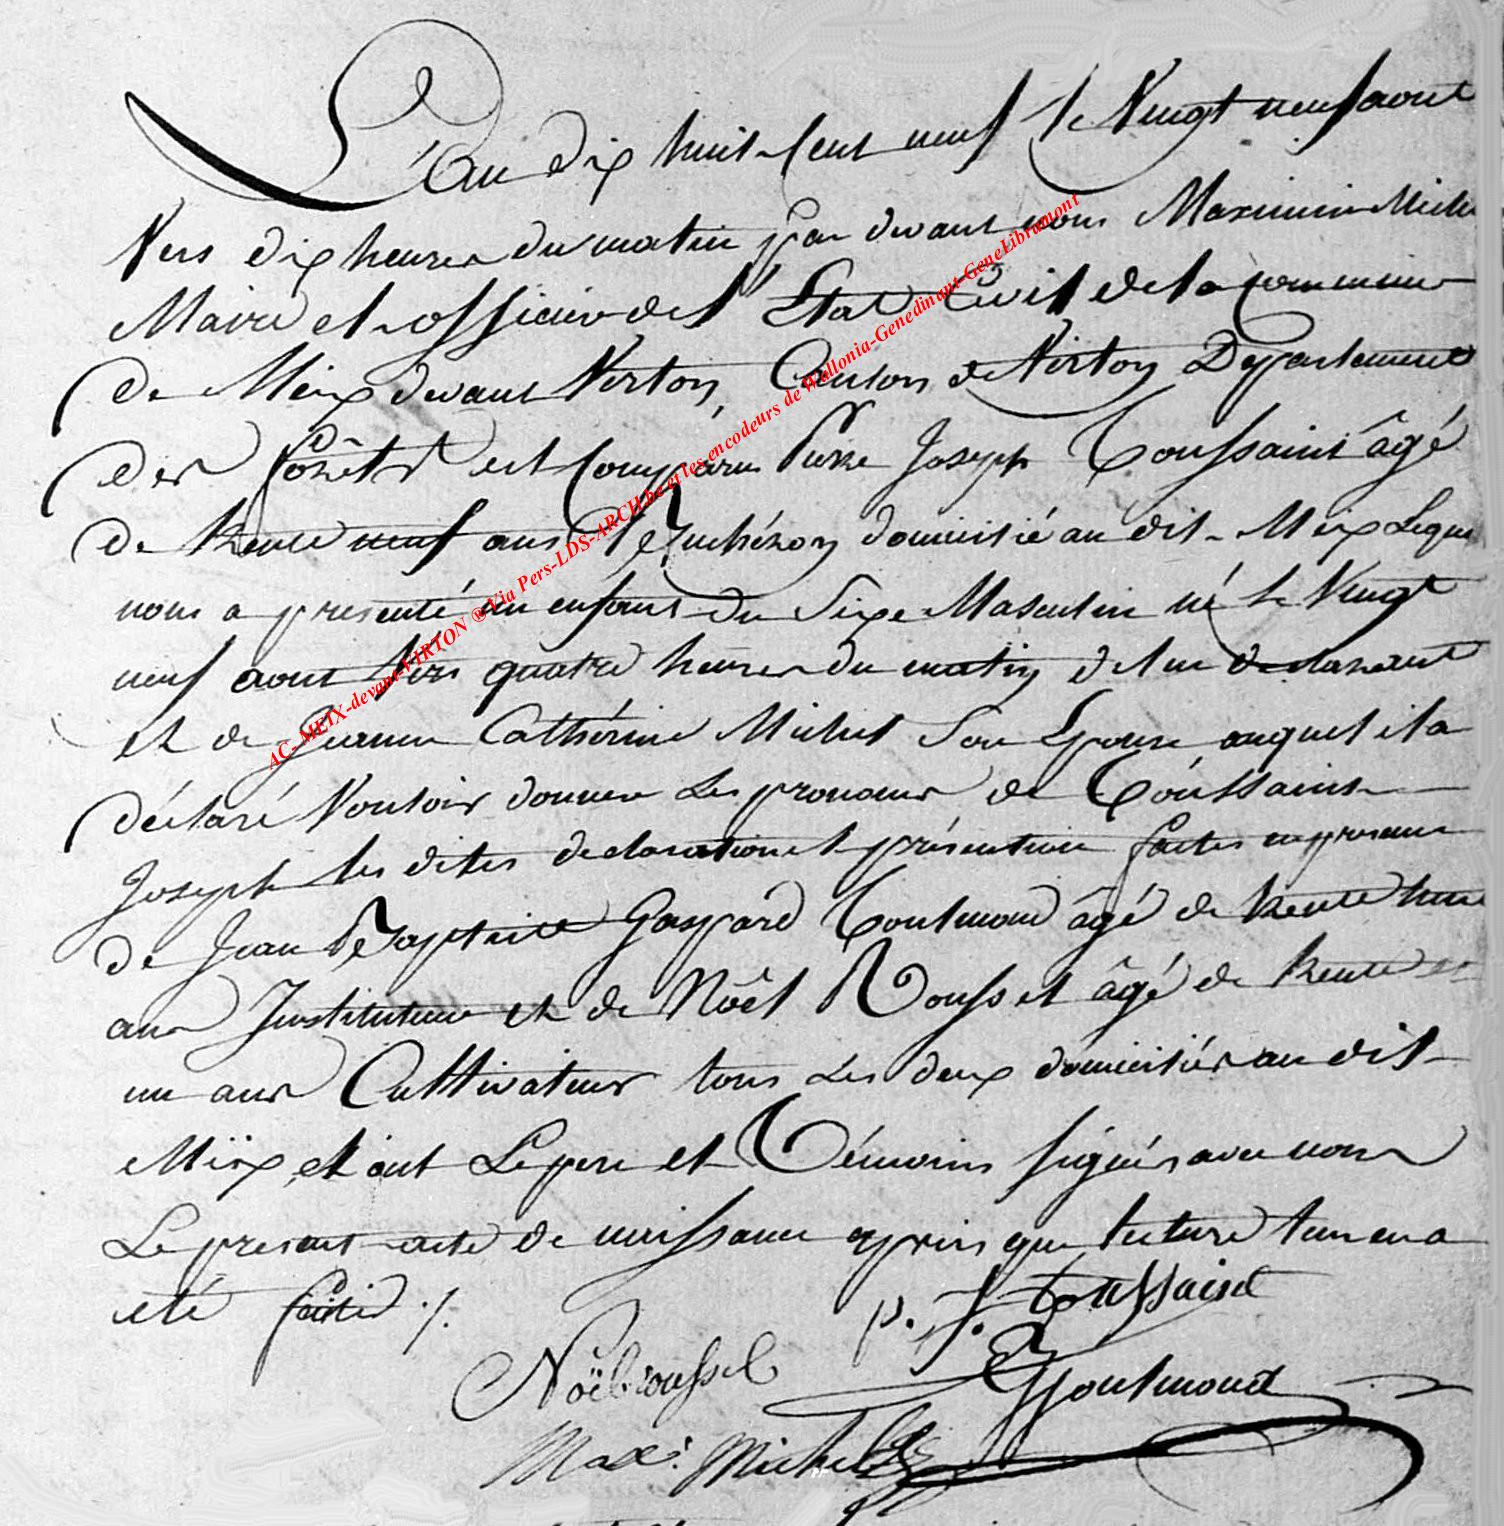 L'an dix huit Cent neuf le Vingt neuf aout
Vers dix heures du matin par devant nous Maximin Michel
Maire et officier de l'Etat Civil de la Commune
de Meix devant Virton, Canton de Virton Departement
des forêts est Comparu Pierre Joseph Toussaint âgé
de trente neuf ans domicilié au dit Meix Lequel
nous a presenté un enfant du Sexe Masculin né le Vingt
neuf aout Vers quatre heures du matin de lui declarant
et de Jeanne Cathérine Michel Son Epouse auquel il a
déclaré Vouloir donner Les prenoms de Toussaint
Joseph les dites declaration et présentation faites en presence
de Jean Baptiste Gaspard Goulmond âgé de trente
ans Instituteur et de Noêl Roussel âgé de trente et
un ans Cultivateur tous Les deux domiciliés au dit
Meix, et ont Le pere et Témoins signés avec nous
Le present acte de naissance après que lecture leur en a
eté faite ./.
p. j. Toussaint
Noël roussel
Goulmond
Max: Michel
AC-MEIX-devant-VIRTON ® Via Pers-LDS-ARCH.be et les encodeurs de Wallonia-Genedinant-GeneLibramont